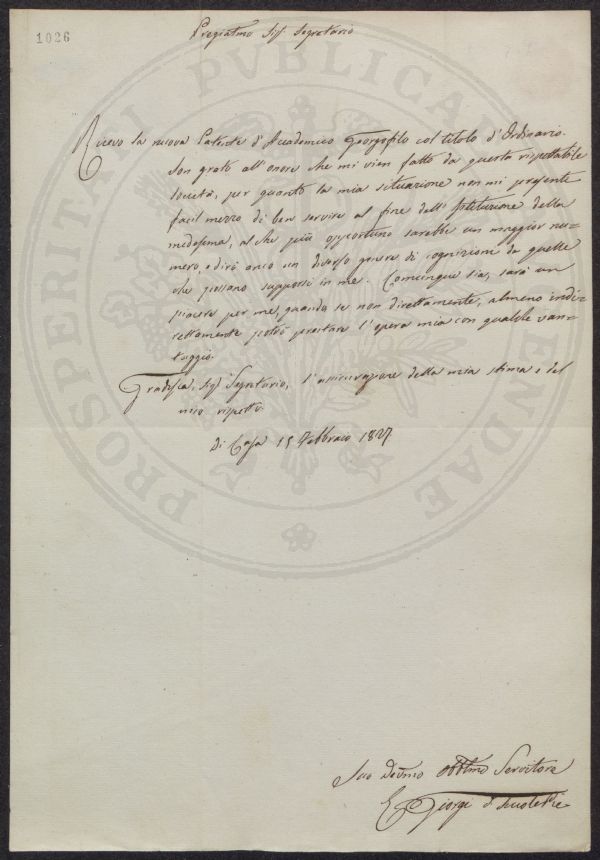 1026
Pregiatmo Sig. Segretario
Ricevo la nuova Patente d'Accademico Georgofilo col titolo d'Ordinario.
Son grato all'onore che mi vien fatto da questa rispettabile
Società, per quanto la mia situazione non mi presente
facil mezzo di ben servire al fine dell'Istituzione della
medesima, al che più opportuno sarebbe un maggior nu=
mero, e dirò anco un diverso genere di cognizioni da quelle
che possano supporsi in me. Comunque sia, sarà un
piacere per me, quando, se non direttamente, almeno indi=
rettamente potrò prestare l'opera mia con qualche van=
taggio.
Gradisca, Sig. Segretario, l'assicurazione della mia stima e del
mio rispetto.
Di Casa 15 Febbraio 1827.
Suo Devmo Obblmo Servitore
Giorgi d
PROSPERITATI PVBLICAE AVGENDAE